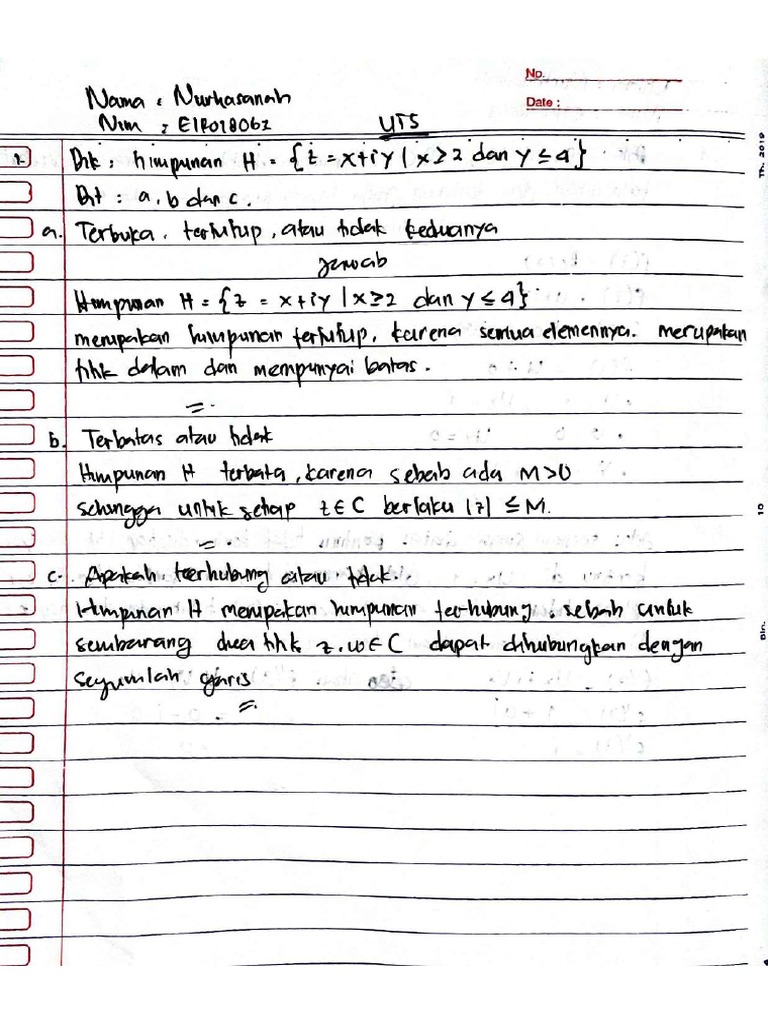 No.
Date :
Nama : Nurhasanah
Nim : E1R018062
UTS
1. Dik : himpunan H = {z = x+iy | x ≥ 2 dan y ≤ 4}
Dit : a, b dan c.
a. Terbuka, tertutup, atau tidak keduanya
Jawab
Himpunan H = {z = x+iy | x ≥ 2 dan y ≤ 4}
merupakan himpunan tertutup, karena semua elemennya merupakan
titik dalam dan mempunyai batas.
=.
b. Terbatas atau tidak
Himpunan H terbata, karena sebab ada M>0
sehingga untuk setiap z ∈ C berlaku |z| ≤ M.
=.
c. Apakah terhubung atau tidak.
Himpunan H merupakan himpunan terhubung, sebab untuk
sembarang dua titik z, w ∈ C dapat dihubungkan dengan
sejumlah garis
=.
Th. 2019
10
Bln.